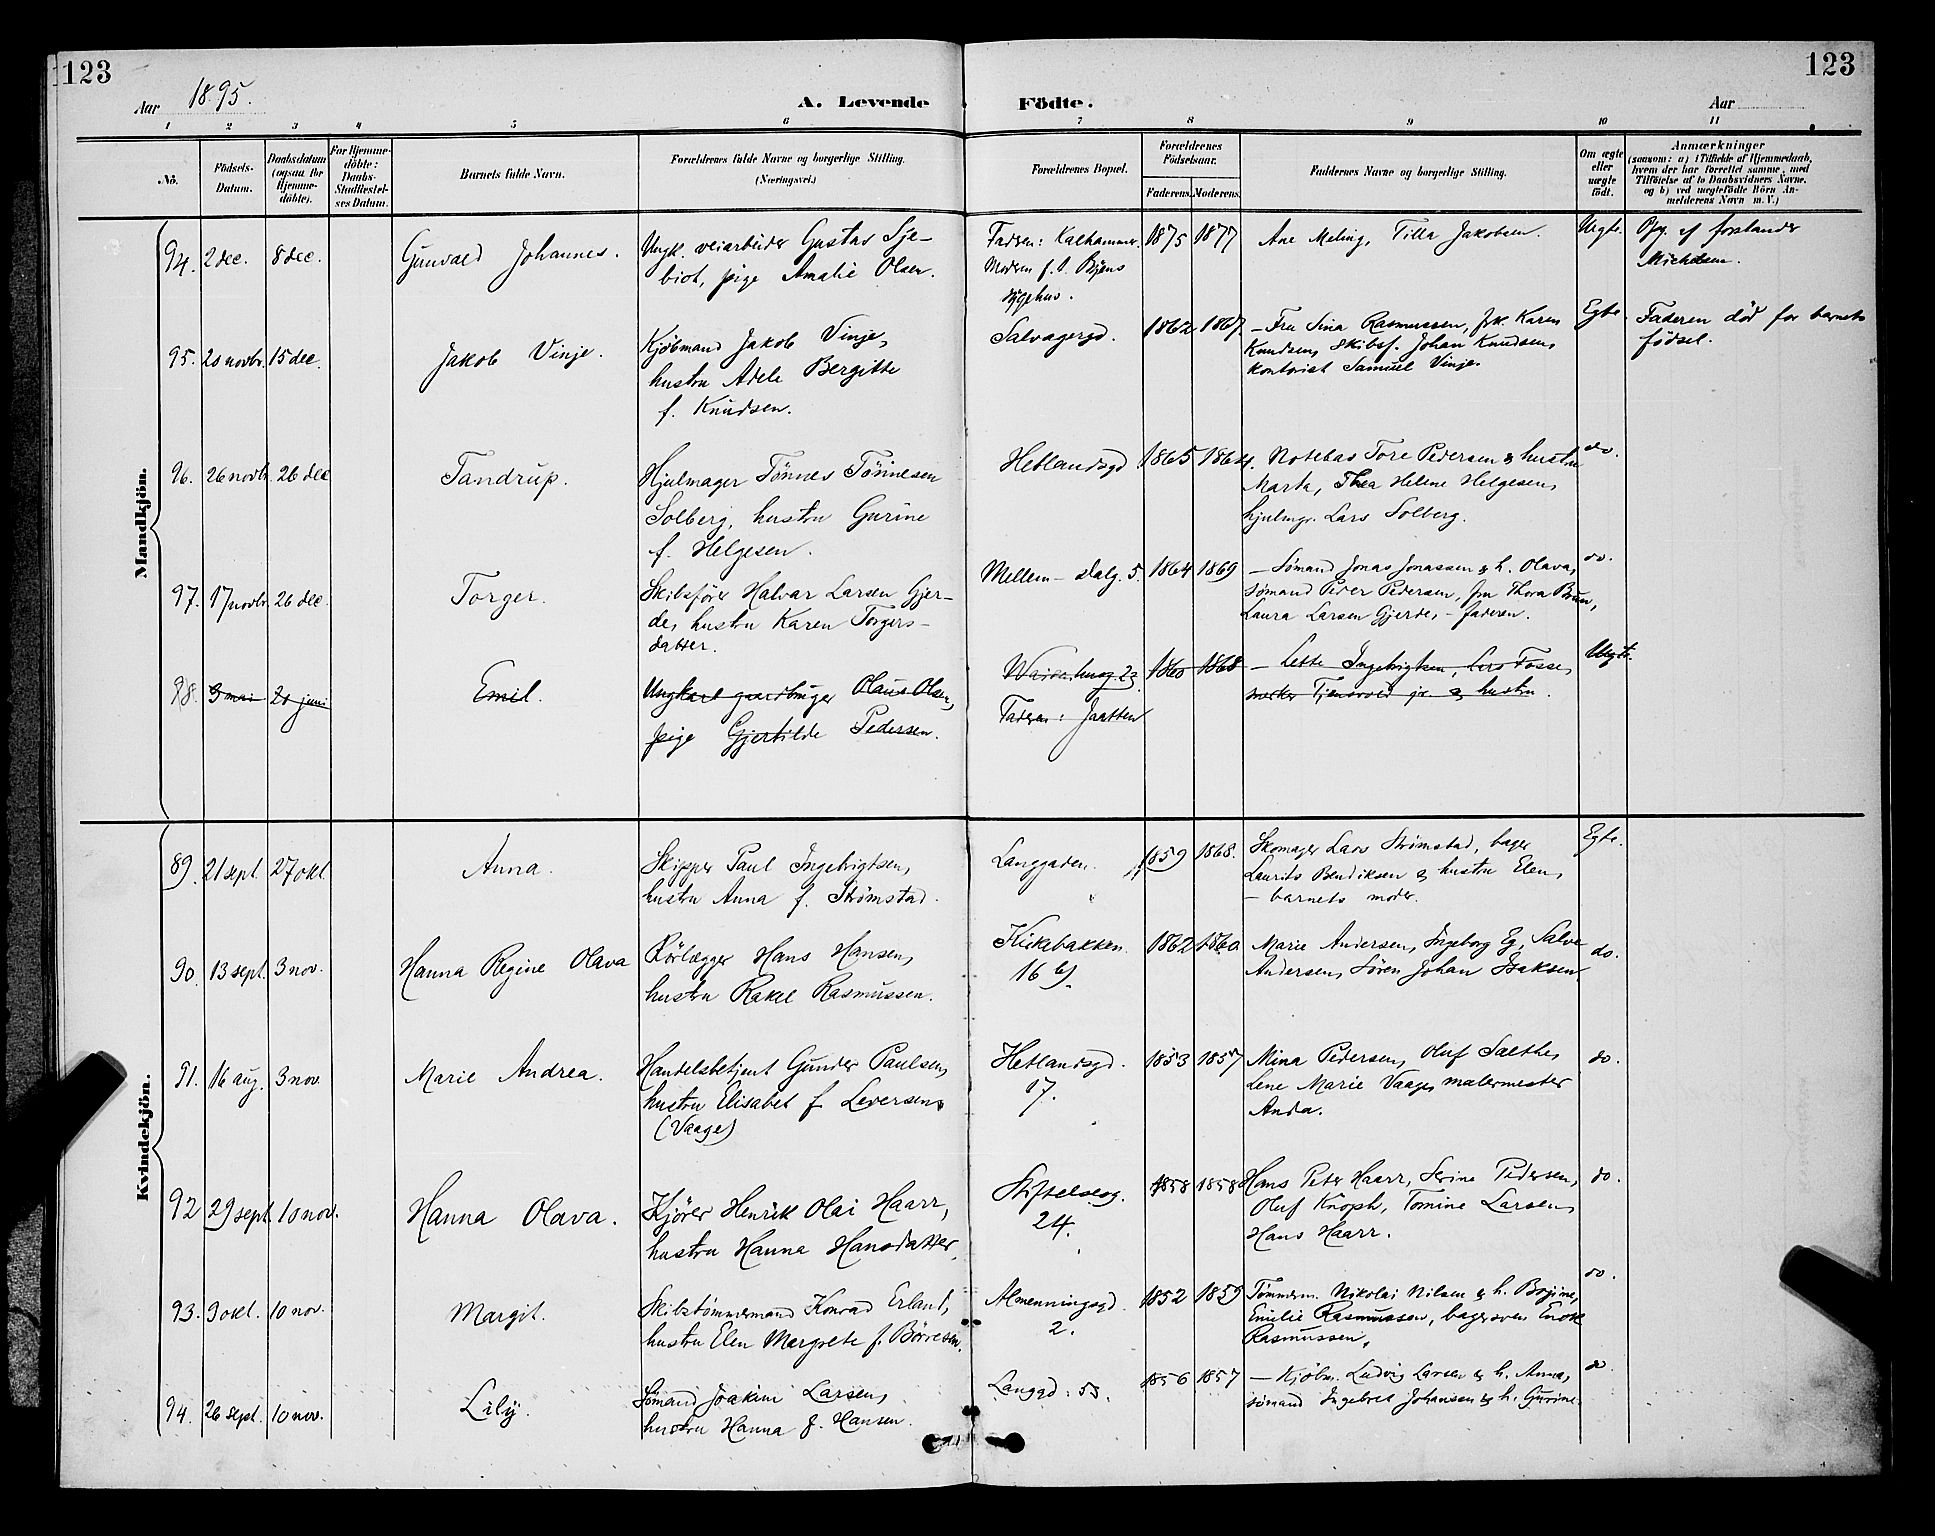 123
123
Aar 1895.
A. Levende
Födte.
Aar
1 2 3 4 5 6 7 8 9 10 11
No.
Födsels-
Datum.
Daabsdatum
(ogsaa for
Hjemme-
döbte).
For Hjemme-
döbte:
Daabs-
Stadfæstel-
ses Datum.
Barnets fulde Navn.
Forældrenes fulde Navne og borgerlige Stilling.
(Næringsvei.)
Forældrenes Bopæl.
Forældrenes
Födselsaar.
Faderens.
Moderens.
Faddernes Navne og borgerlige Stilling.
Om ægte
eller
uægte
födt.
Anmærkninger
(saasom: a) i Tilfælde af Hjemmedaab,
hvem der har forrettet samme, med
Tilföielse af to Daabsvidners Navne,
og b) ved uægtefödte Börn An-
melderens Navn m. V.)
Mandkjön.
94. 2 dec. 8 dec. Gunvald Johannes.
Ungk. veiarbeider Gustav Sje-
biot, pige Amalie Olsen.
Fadren: Kalhammer.
Modren f. t. Byens
sygehus.
1875 1877
Ane Meling, Tilla Jakobsen.
Uegte.
Opg. af forstander
Michelsen.
95. 20 novbr. 15 dec. Jakob Vinje.
Kjøbmand Jakob Vinje,
hustru Adele Bergitte
f. Knudsen.
Salvagergd. 1862 1867
– Fru Sina Rasmussen, frk. Karen
Knudsen, skibsf. Johan Knudsen,
kontorist Samuel Vinje.
Egte.
Faderen död for barnets
födsel.
96. 26 novbr. 26 dec. Tandrup.
Hjulmager Tønnes Tønnesen
Solberg, hustru Gurine
f. Helgesen.
Hetlandsgd 1865 1864.
Notebas Tore Pedersen & hustru
Marta, Thea Helene Helgesen,
hjulmgr. Lars Solberg.
do.
97. 17 novbr. 26 dec. Torger.
Skibsfører Halvar Larsen Gjer-
de, hustru Karen Torgers-
datter.
Mellem-dalg. 5. 1864 1869
– Sømand Jonas Jonassen & h. Olava,
sømand Peder Pedersen, fru Thora Bruun,
Laura Larsen Gjerde, – faderen.
do.
98. 3 mai 20 juni Emil.
Ungkarl gaardbruger Olaus Olsen,
pige Gjertilde Pedersen.
23.
Fadren: Jaatten
1860 1868
– Lette Ingebrigtsen, Lars Fosse,
Tjensvold jr. & hustru.
Uegte.
Kvindekjön.
89. 21 sept. 27 okt. Anna.
Skipper Paul Ingebrigtsen,
hustru Anna f. Strømstad.
Langgaden. 1859 1868.
Skomager Lars Strømstad, bager
Laurits Bendiksen & hustru Elen,
– barnets moder.
Egte.
90. 13 sept. 3 nov. Hanna Regine Olava
Rørlægger Hans Hansen,
hustru Rakel Rasmussen.
Kirkebakken
16 b).
1862 1860
Marie Andersen, Ingeborg Eg, Salve
Andersen, Søren Johan Isaksen.
do.
91. 16 aug. 3 nov. Marie Andrea.
Handelsbetjent Gunder Paulsen,
hustru Elisabet f. Leversen
(Vaage)
Hetlandsgd.
17.
1853 1857
Mina Pedersen, Oluf Sælthe,
Lene Marie Vaage, malermester
Anda.
do.
92. 29 sept. 10 nov. Hanna Olava.
Kjører Henrik Olai Haarr,
hustru Hanna Hansdatter.
Stiftelsesg.
24.
1858 1858
Hans Peter Haarr, Serine Pedersen,
Oluf Knoph, Tomine Larsen,
Hans Haarr.
do.
93. 9 okt. 10 nov. Margit.
Skibstømmermand Konrad Erland,
hustru Elen Margrete f. Børresen.
Almenningsgd.
2.
1852 1859
Tømmerm. Nikolai Nilsen & h. Birgine,
Emilie Rasmussen, bagersven Enok
Rasmussen.
do.
94. 26 sept. 10 nov. Lily.
Sømand Joakim Larsen,
hustru Hanna f. Hansen.
Langgd. 53. 1856 1857
– Kjøbm. Ludvig Larsen & h. Anna,
sømand Ingebret Johansen & h. Gurine.
do.